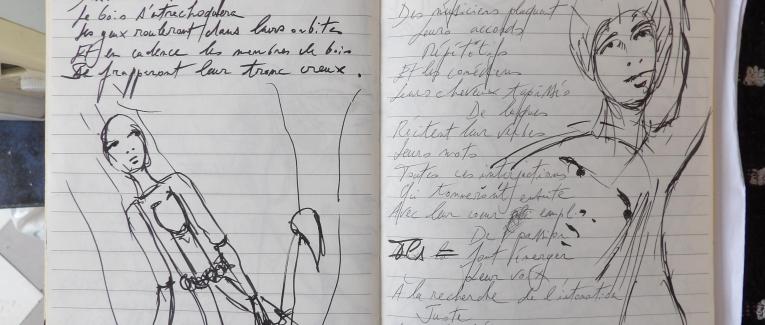 Le bois s'entrechoquera
Les yeux rouleront dans leurs orbites
Et en cadence les membres de bois
Se frapperont leur tronc creux.
Des musiciens plaquent
Leurs accords
Répétitifs
Et les comédiens
Leurs cheveux tapissés
De laques
Récitent leur verbes
Leurs mots
Toutes ces interpretions
Qui tonneront ensuite
Avec leur coeur empli
De passion
Ils font émerger
Leur voix
A la recherche de l'intonation
Juste